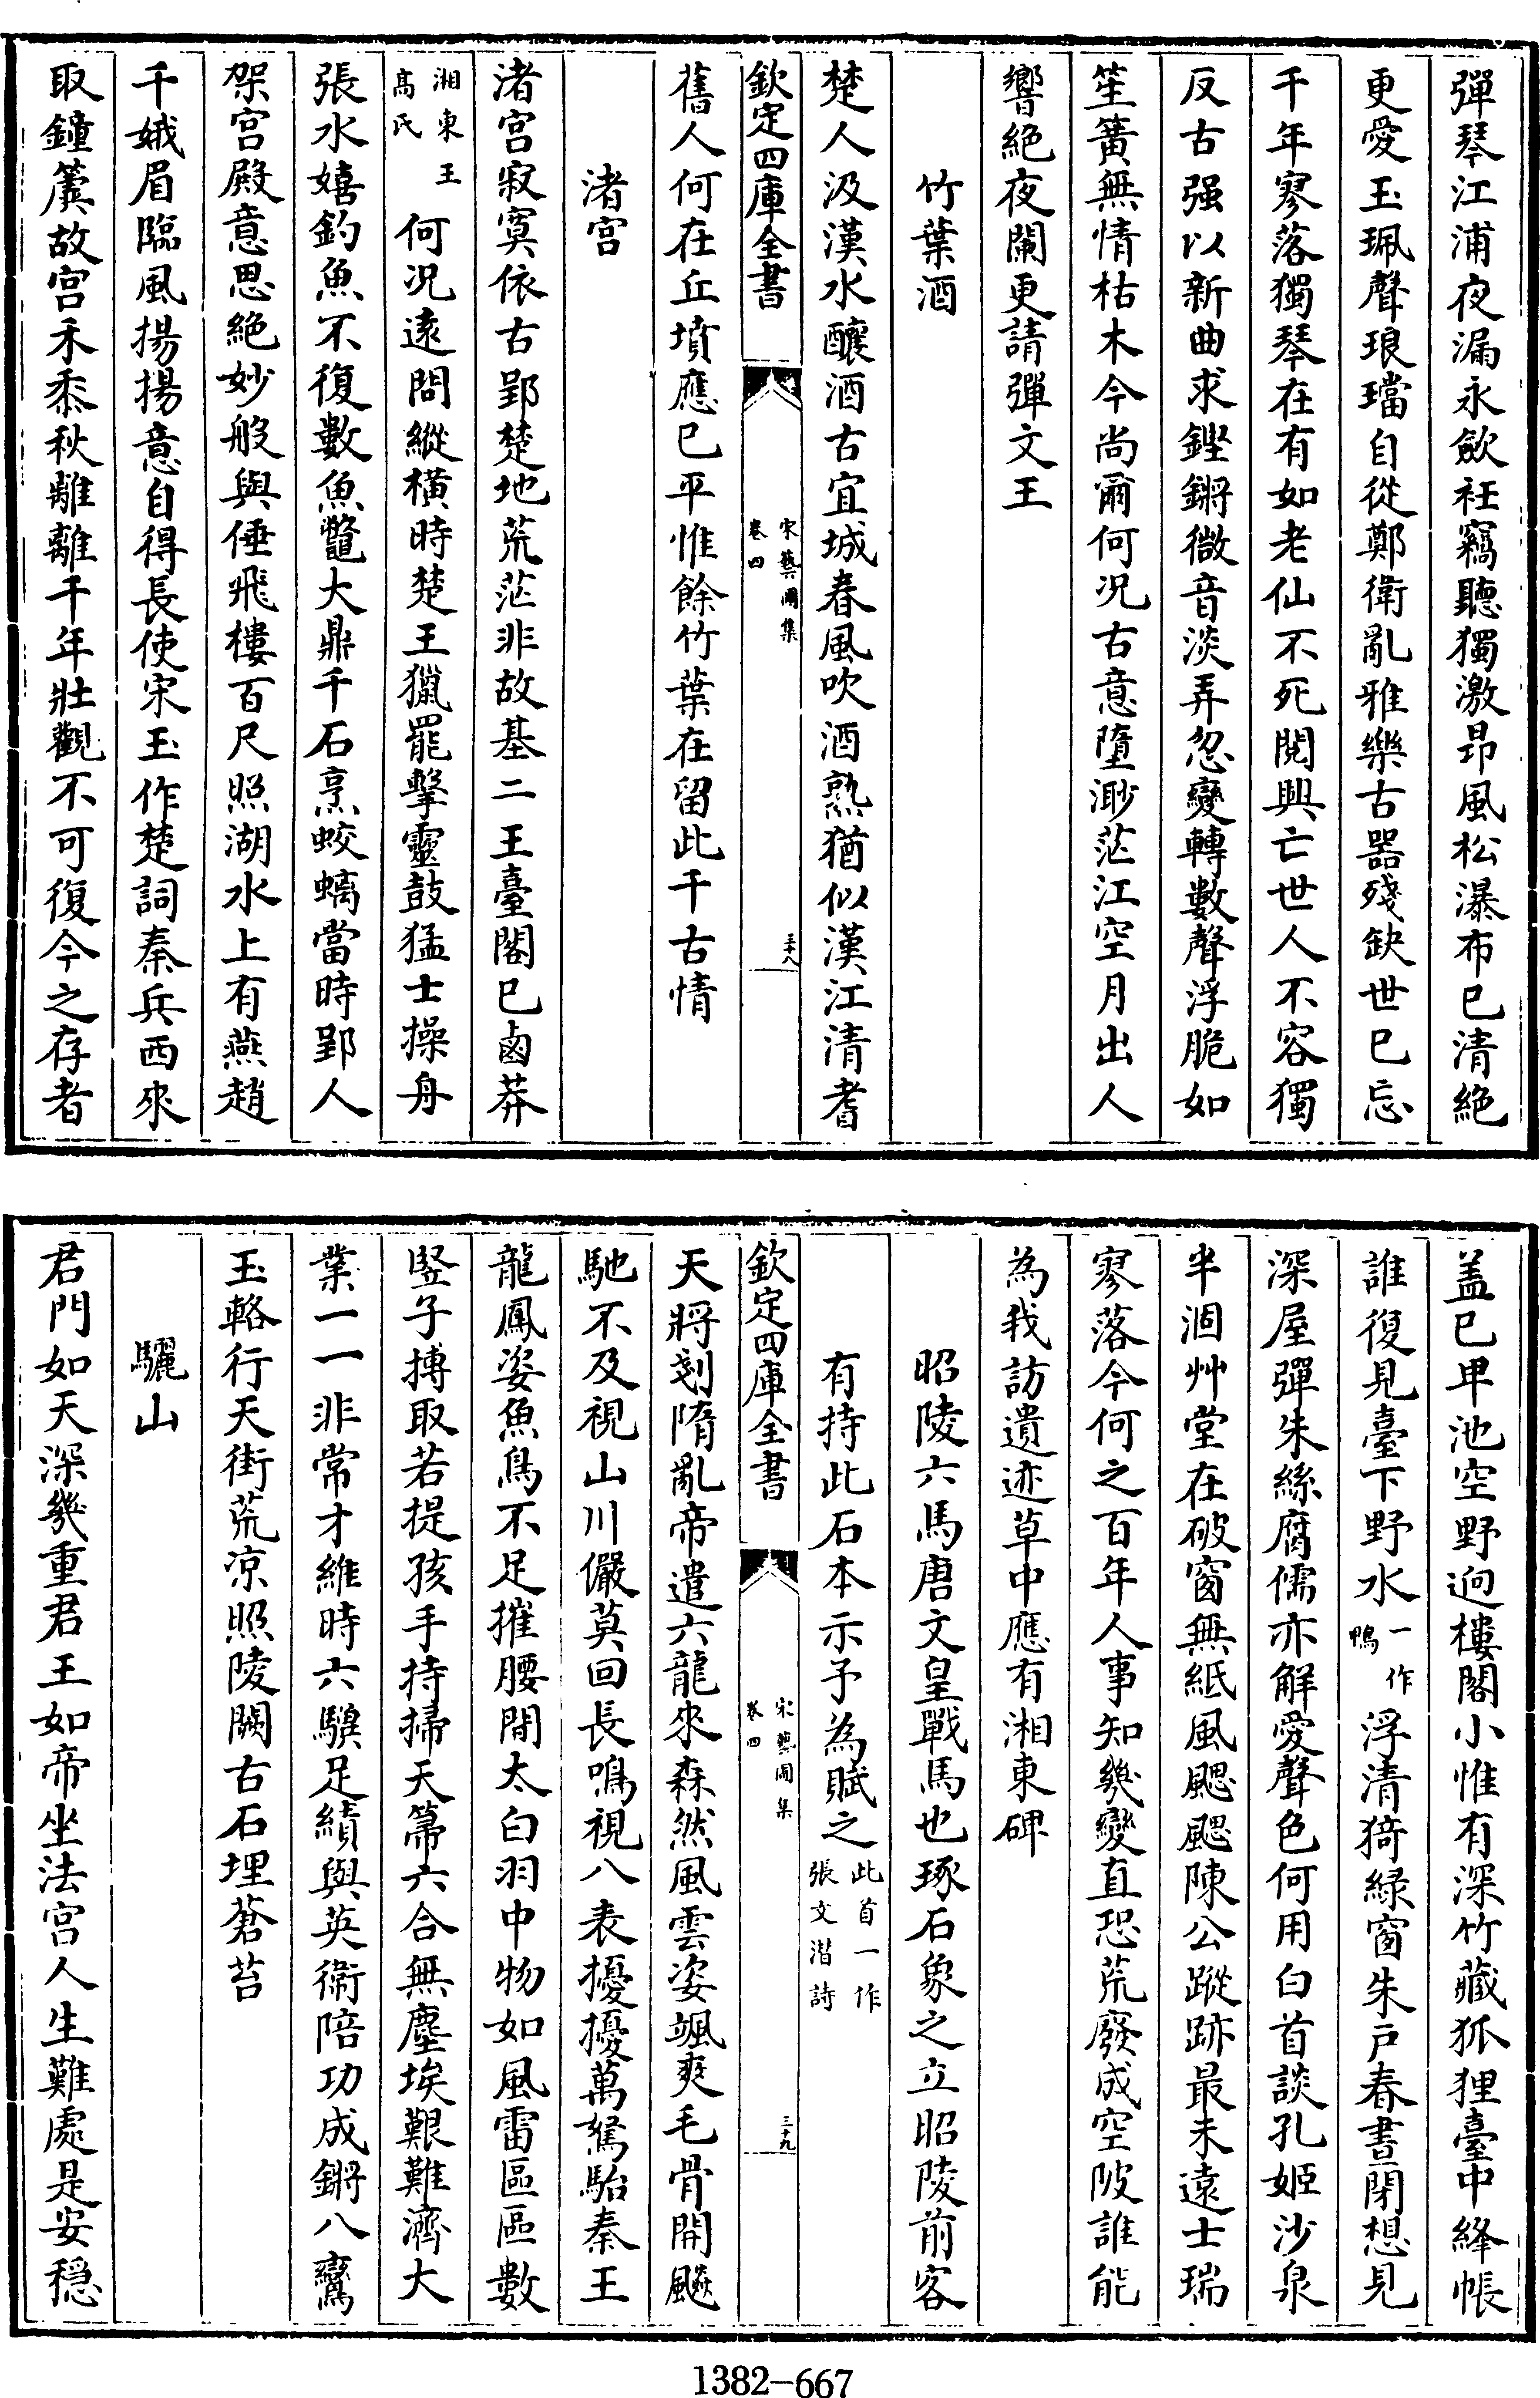 彈琴江浦夜漏永歛衽竊聽獨激昻風松瀑布已清絶
更愛玉珮聲琅璫自從鄭衛亂雅樂古器殘缺世已忘
千年寥落獨琴在有如老仙不死閱興亡世人不容獨
反古强以新曲求鏗鏘微音淡弄忽變轉數聲浮脆如
笙簧無情枯木今尚爾何况古意墮渺茫江空月出人
響絶夜闌更請彈文王
竹葉酒
楚人汲漢水釀酒古宜城春風吹酒熟猶似漢江清耆
欽定四庫全書
宋藝圃集
卷四
三十八
舊人何在丘墳應已平惟餘竹葉在留此千古情
渚宮
渚宮寂寞依古郢楚地荒茫非故基二王臺閣已鹵莽
湘東王
高氏
何况遠問縱橫時楚王獵罷擊靈鼓猛士操舟
張水嬉釣魚不復數魚鼈大鼎千石烹蛟螭當時郢人
架宮殿意思絶妙般與倕飛樓百尺照湖水上有燕趙
千娥眉臨風揚揚意自得長使宋玉作楚詞秦兵西來
取鐘簴故宮禾黍秋離離千年壯觀不可復今之存者
盖已卑池空野逈樓閣小惟有深竹藏狐狸臺中絳帳
誰復見臺下野水
一作
鴨
浮清猗緑窗朱戸春晝閉想見
深屋彈朱絲腐儒亦解愛聲色何用白首談孔姬沙泉
半涸艸堂在破窗無紙風颸颸陳公蹤跡最未遠士瑞
寥落今何之百年人事知幾變直恐荒廢成空陂誰能
為我訪遺迹草中應有湘東碑
昭陵六馬唐文皇戰馬也琢石象之立昭陵前客
有持此石本示予為賦之
此首一作
張文潛詩
欽定四庫全書
宋藝圃集
卷四
三十九
天將剗隋亂帝遣六龍來森然風雲姿颯爽毛骨開飈
馳不及視山川儼莫回長鳴視八表擾擾萬駑駘秦王
龍鳳姿魚鳥不足摧腰間太白羽中物如風雷區區數
竪子搏取若提孩手持掃天箒六合無塵埃艱難濟大
業一一非常才維時六驥足績與英衛陪功成鏘八鸞
玉輅行天街荒凉照陵闕古石埋蒼苔
驪山
君門如天深幾重君王如帝坐法宮人生難處是安穏
1382-667